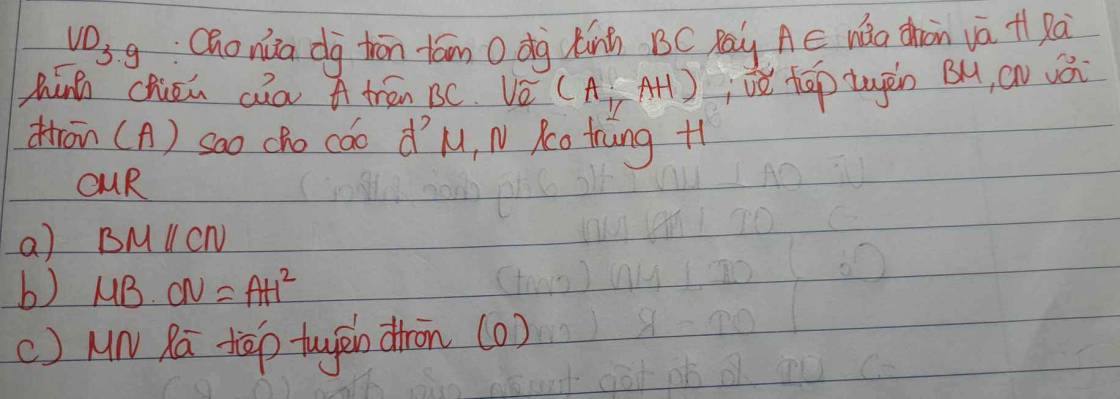 VD3.9 : Cho nửa đg tròn tâm O đg kính BC lấy A ∈ nửa đtròn và H là
hình chiếu của A trên BC. Vẽ (A; AH), vẽ tiếp tuyến BM, CN với
đtròn (A) sao cho các đ' M, N ko trùng H
CMR
a) BM // CN
b) MB. CN = AH²
c) MN là tiếp tuyến đtròn (O)